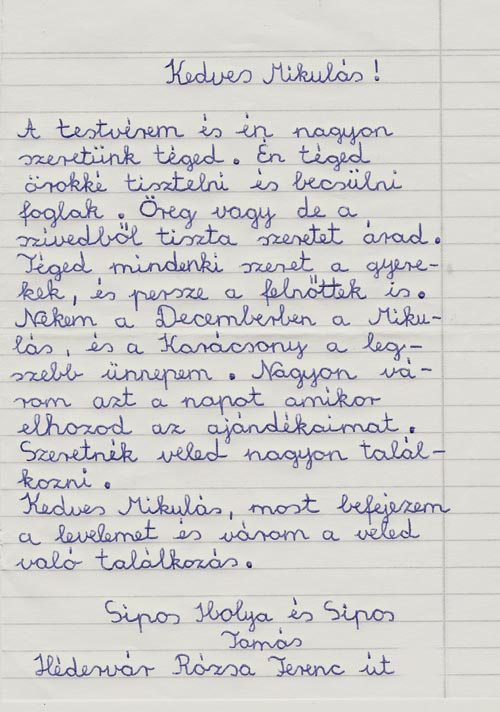 Kedves Mikulás!
A testvérem és én nagyon
szeretünk téged. Én téged
örökké tisztelni és becsülni
foglak. Öreg vagy de a
szivedből tiszta szeretet árad.
Téged mindenki szeret a gyere-
kek, és persze a felnőttek is.
Nekem a Decemberben a Miku-
lás, és a Karácsony a leg-
szebb ünnepem. Nagyon vá-
rom azt a napot amikor
elhozod az ajándékaimat.
Szeretnék veled nagyon talál-
kozni.
Kedves Mikulás, most befejezem
a levelemet és várom a veled
való találkozás.
Sipos Ibolya és Sipos
Tamás
Hédervár Rózsa Ferenc út